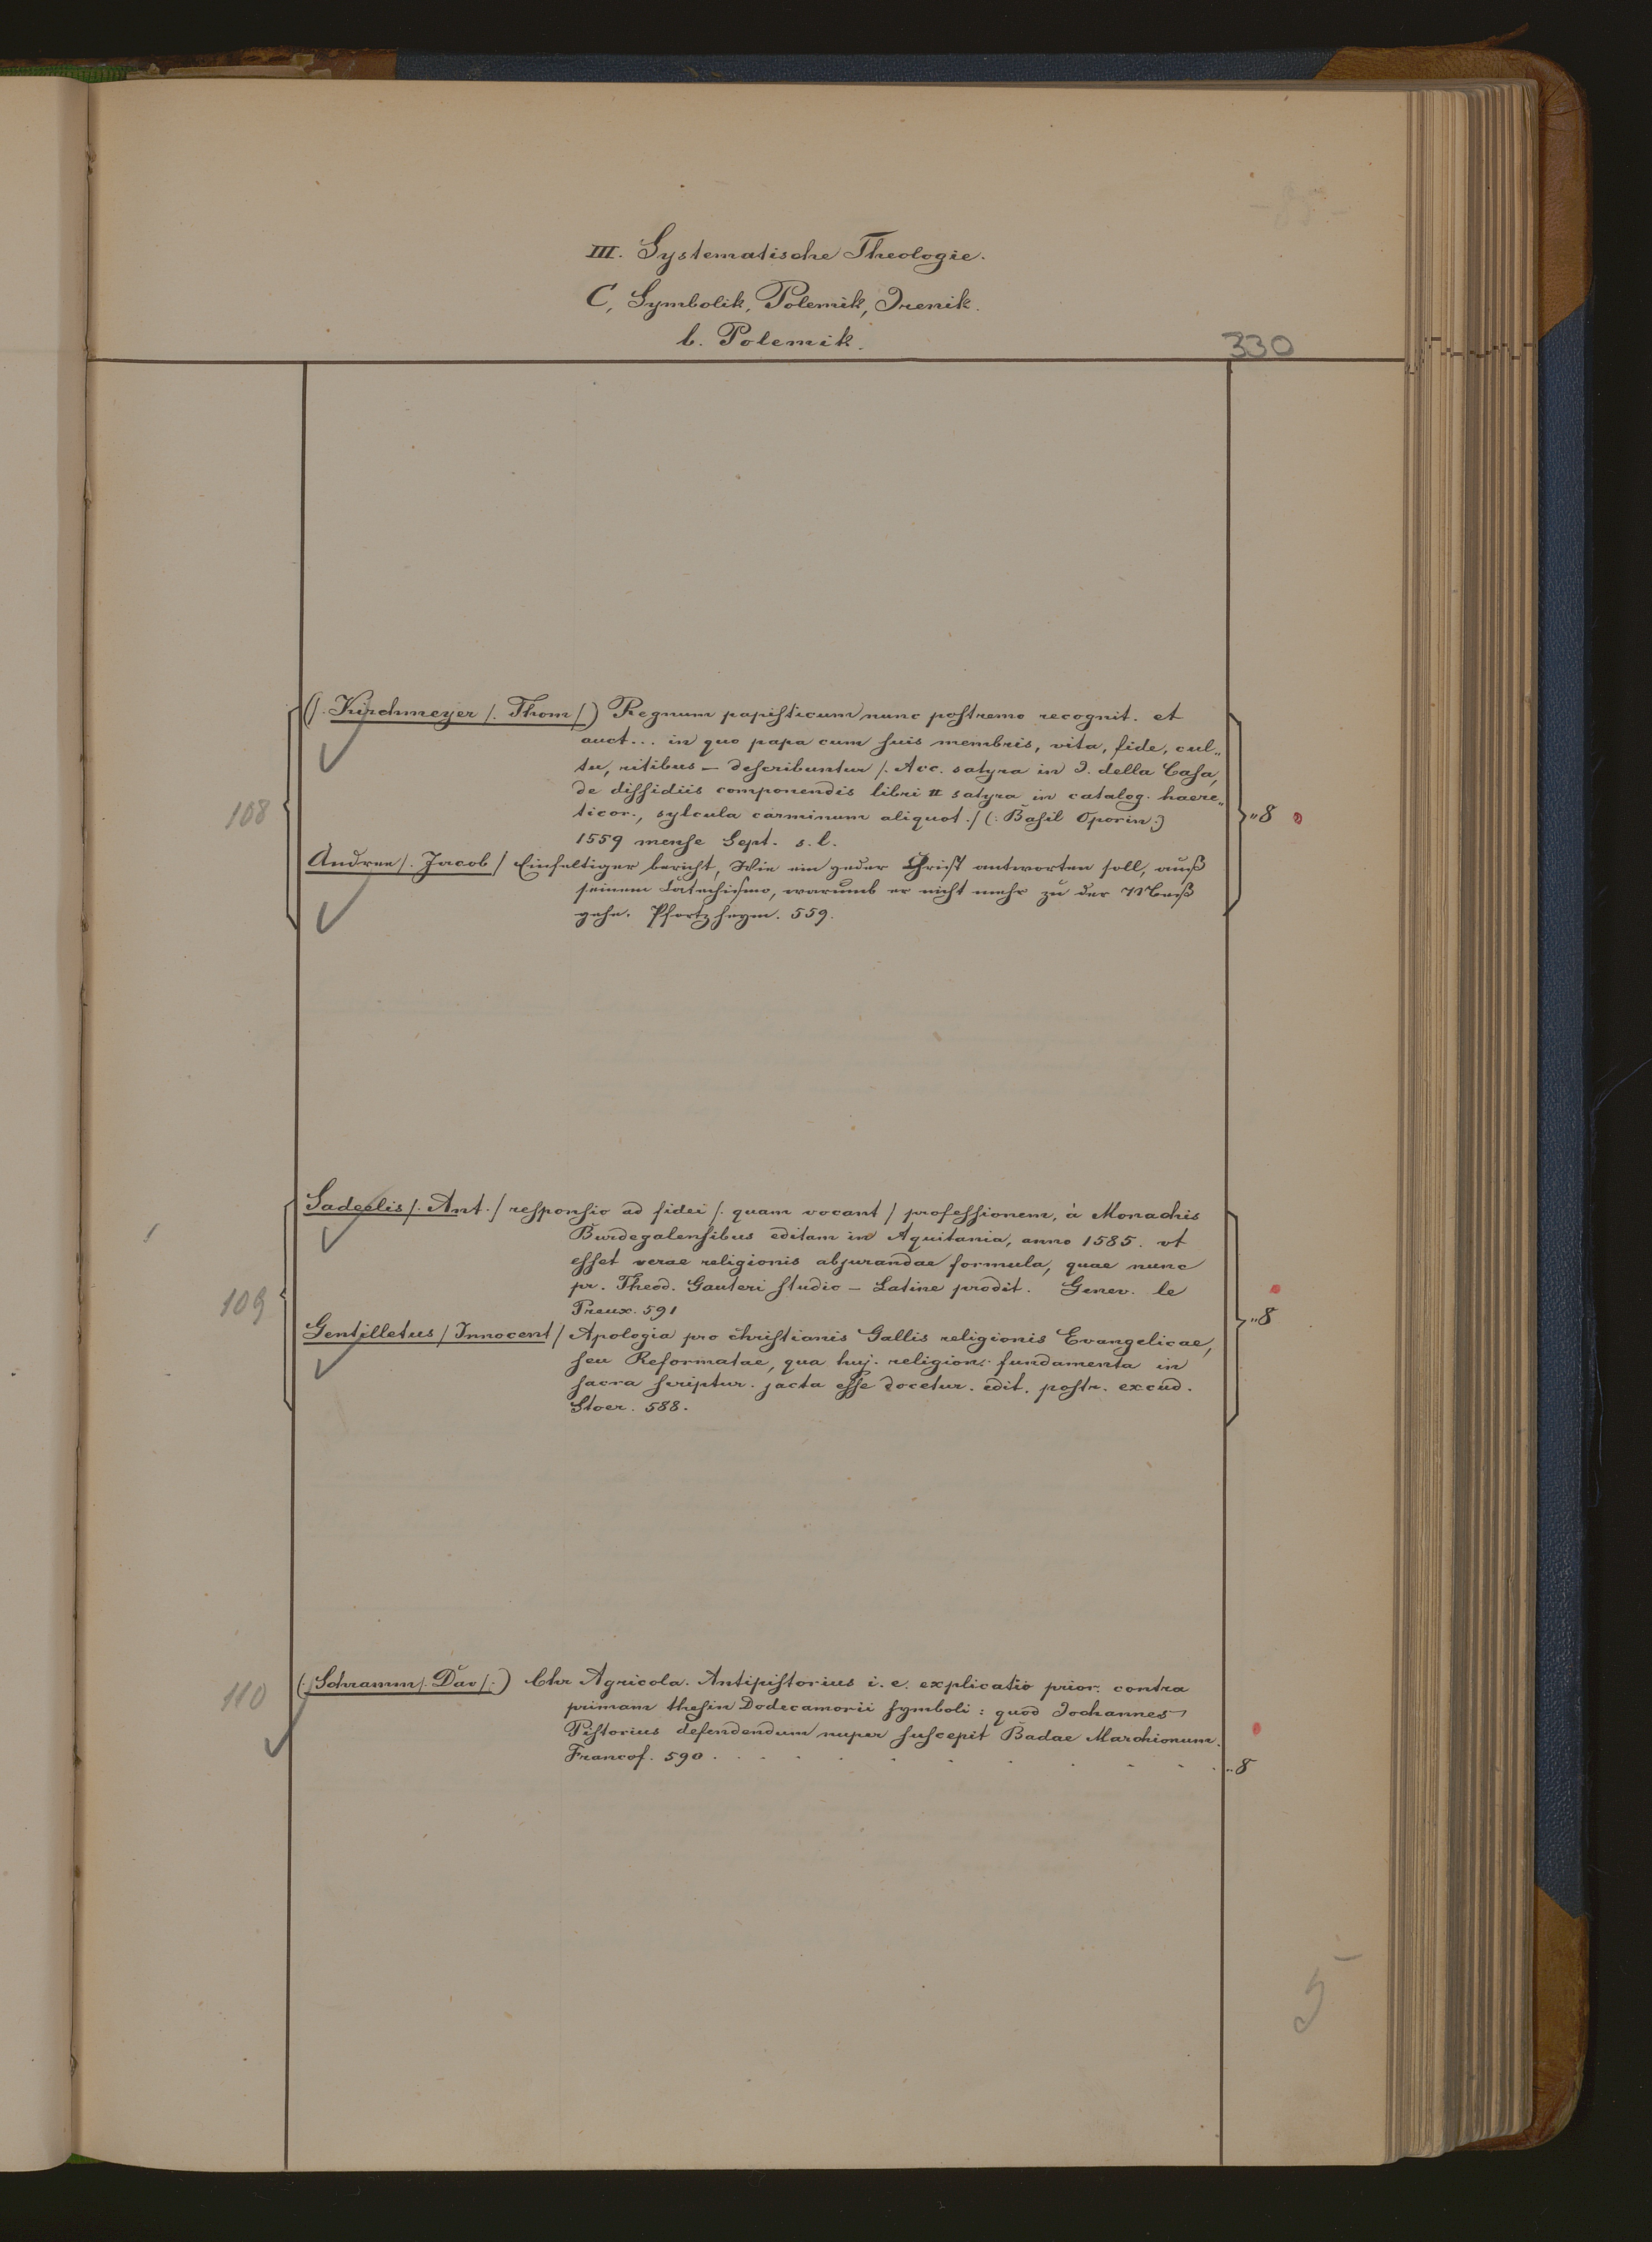 III. Systematische Theologie.
C, Symbolik, Polemik, Irenik.
b. Polemik.
330
108
(/. Kirchmeyer /. Thom /.) Regnum papisticum nunc postremo recognit. et
auct... in quo papa cum suis membris, vita, fide, cul„
tu, ritibus – describuntur /. Acc. satyra in I. della Casa,
de dissidiis componendis libri II satyra in catalog. haere„
ticor., sylcula carminum aliquot ./ (: Basil Oporin :)
1559 mense Sept. s. l.
„8
Andree /. Jacob / Einfeltiger bericht, Wie ein yeder Christ antworten soll, auß
seinem Catechismo, warumb er nicht mehr zu der Meß
gehe. Pfortzheym. 559.
109
Sadeelis /. Ant. / responsio ad fidei /. quam vocant / professionem, à Monachis
Burdegalensibus editam in Aquitania, anno 1585. vt
esset verae religionis abjurandae formula, quae nunc
pr. Theod. Gauteri studio – Latine prodit. Genev. le
Preux. 591
„8
Gentilletus / Innocent / Apologia pro christianis Gallis religionis Evangelicae,
seu Reformatae, qua huj. religion. fundamenta in
sacra scriptur. jacta esse docetur. edit. postr. excud.
Stoer. 588.
110
(:/ Schramm /. Dav /.) Chr Agricola. Antipistorius i. e. explicatio prior. contra
primam thesin Dodecamorii symboli : quod Iohannes
Pistorius defendendum nuper suscepit Badae Marchionum.
Francof. 590 . . . . . . . . . „8
5